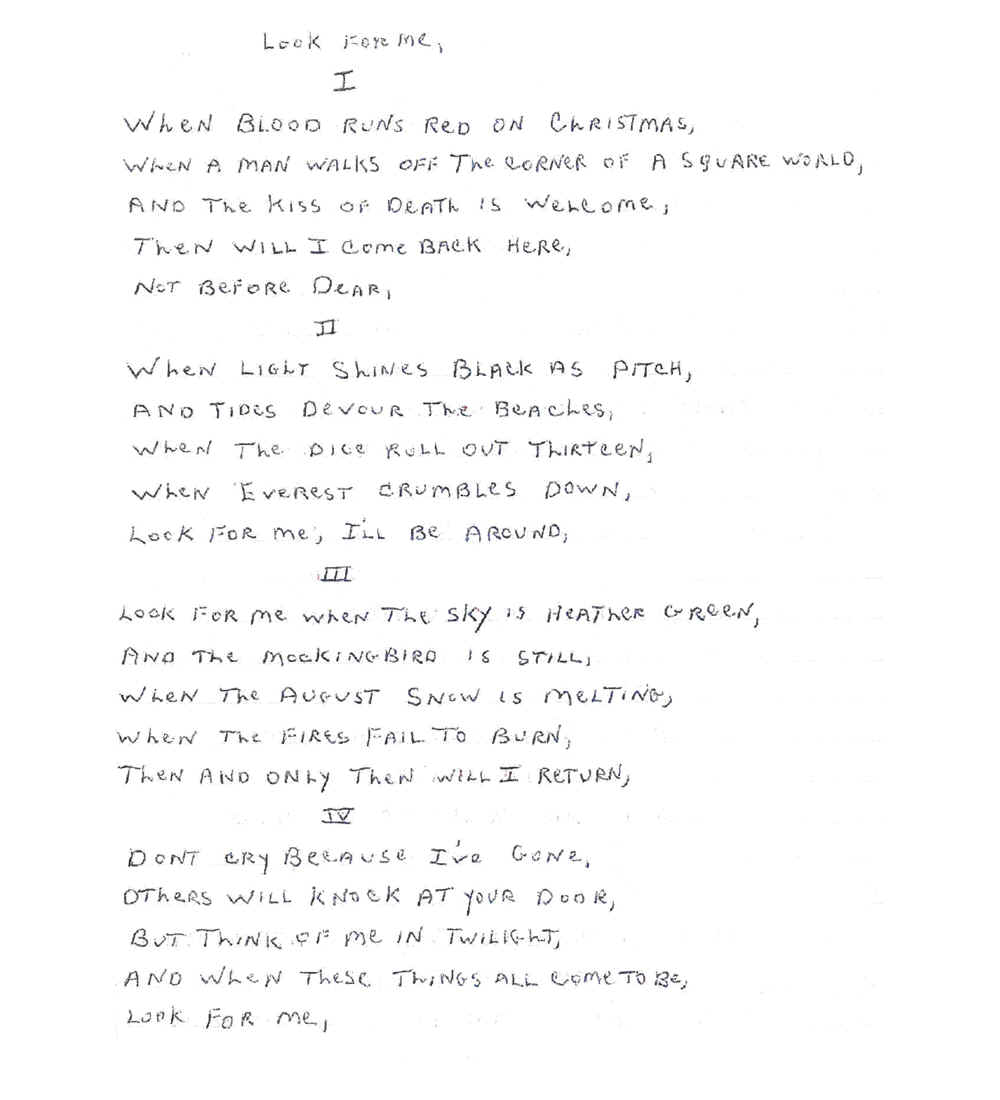 Look For Me,
I
When Blood Runs Red On Christmas,
When A Man Walks Off The Corner Of A Square World,
And The Kiss Of Death Is Welcome,
Then Will I Come Back Here,
Not Before Dear,
II
When Light Shines Black As Pitch,
And Tides Devour The Beaches,
When The Dice Roll Out Thirteen,
When Everest Crumbles Down,
Look For Me, I'll Be Around,
III
Look For Me When The Sky Is Heather Green,
And The Mockingbird Is Still,
When The August Snow Is Melting,
When The Fires Fail To Burn,
Then And Only Then Will I Return,
IV
Dont Cry Because I've Gone,
Others Will Knock At Your Door,
But Think Of Me In Twilight,
And When These Things All Come To Be,
Look For Me,